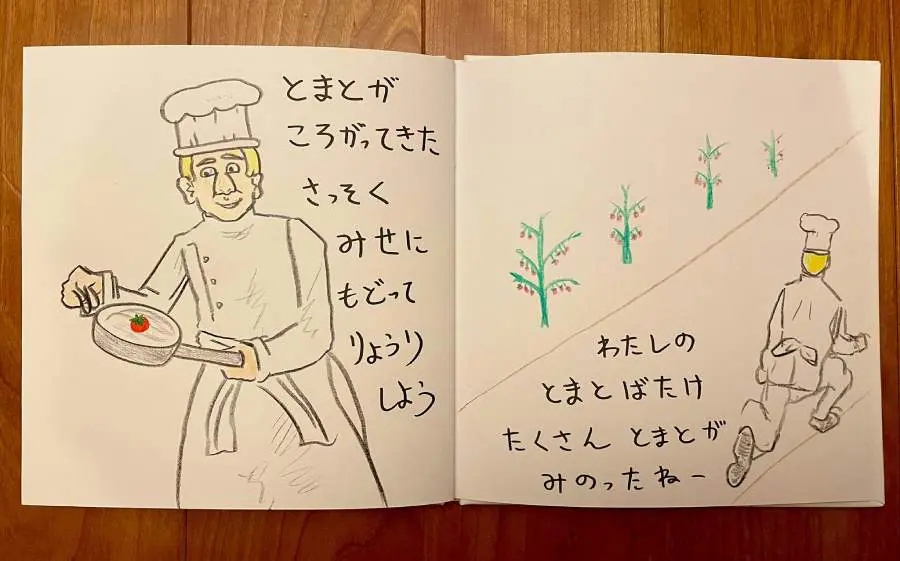 とまとが
ころがってきた
さっそく
みせに
もどって
りょうり
しよう
わたしの
とまとばたけ
たくさん とまとが
みのったねー